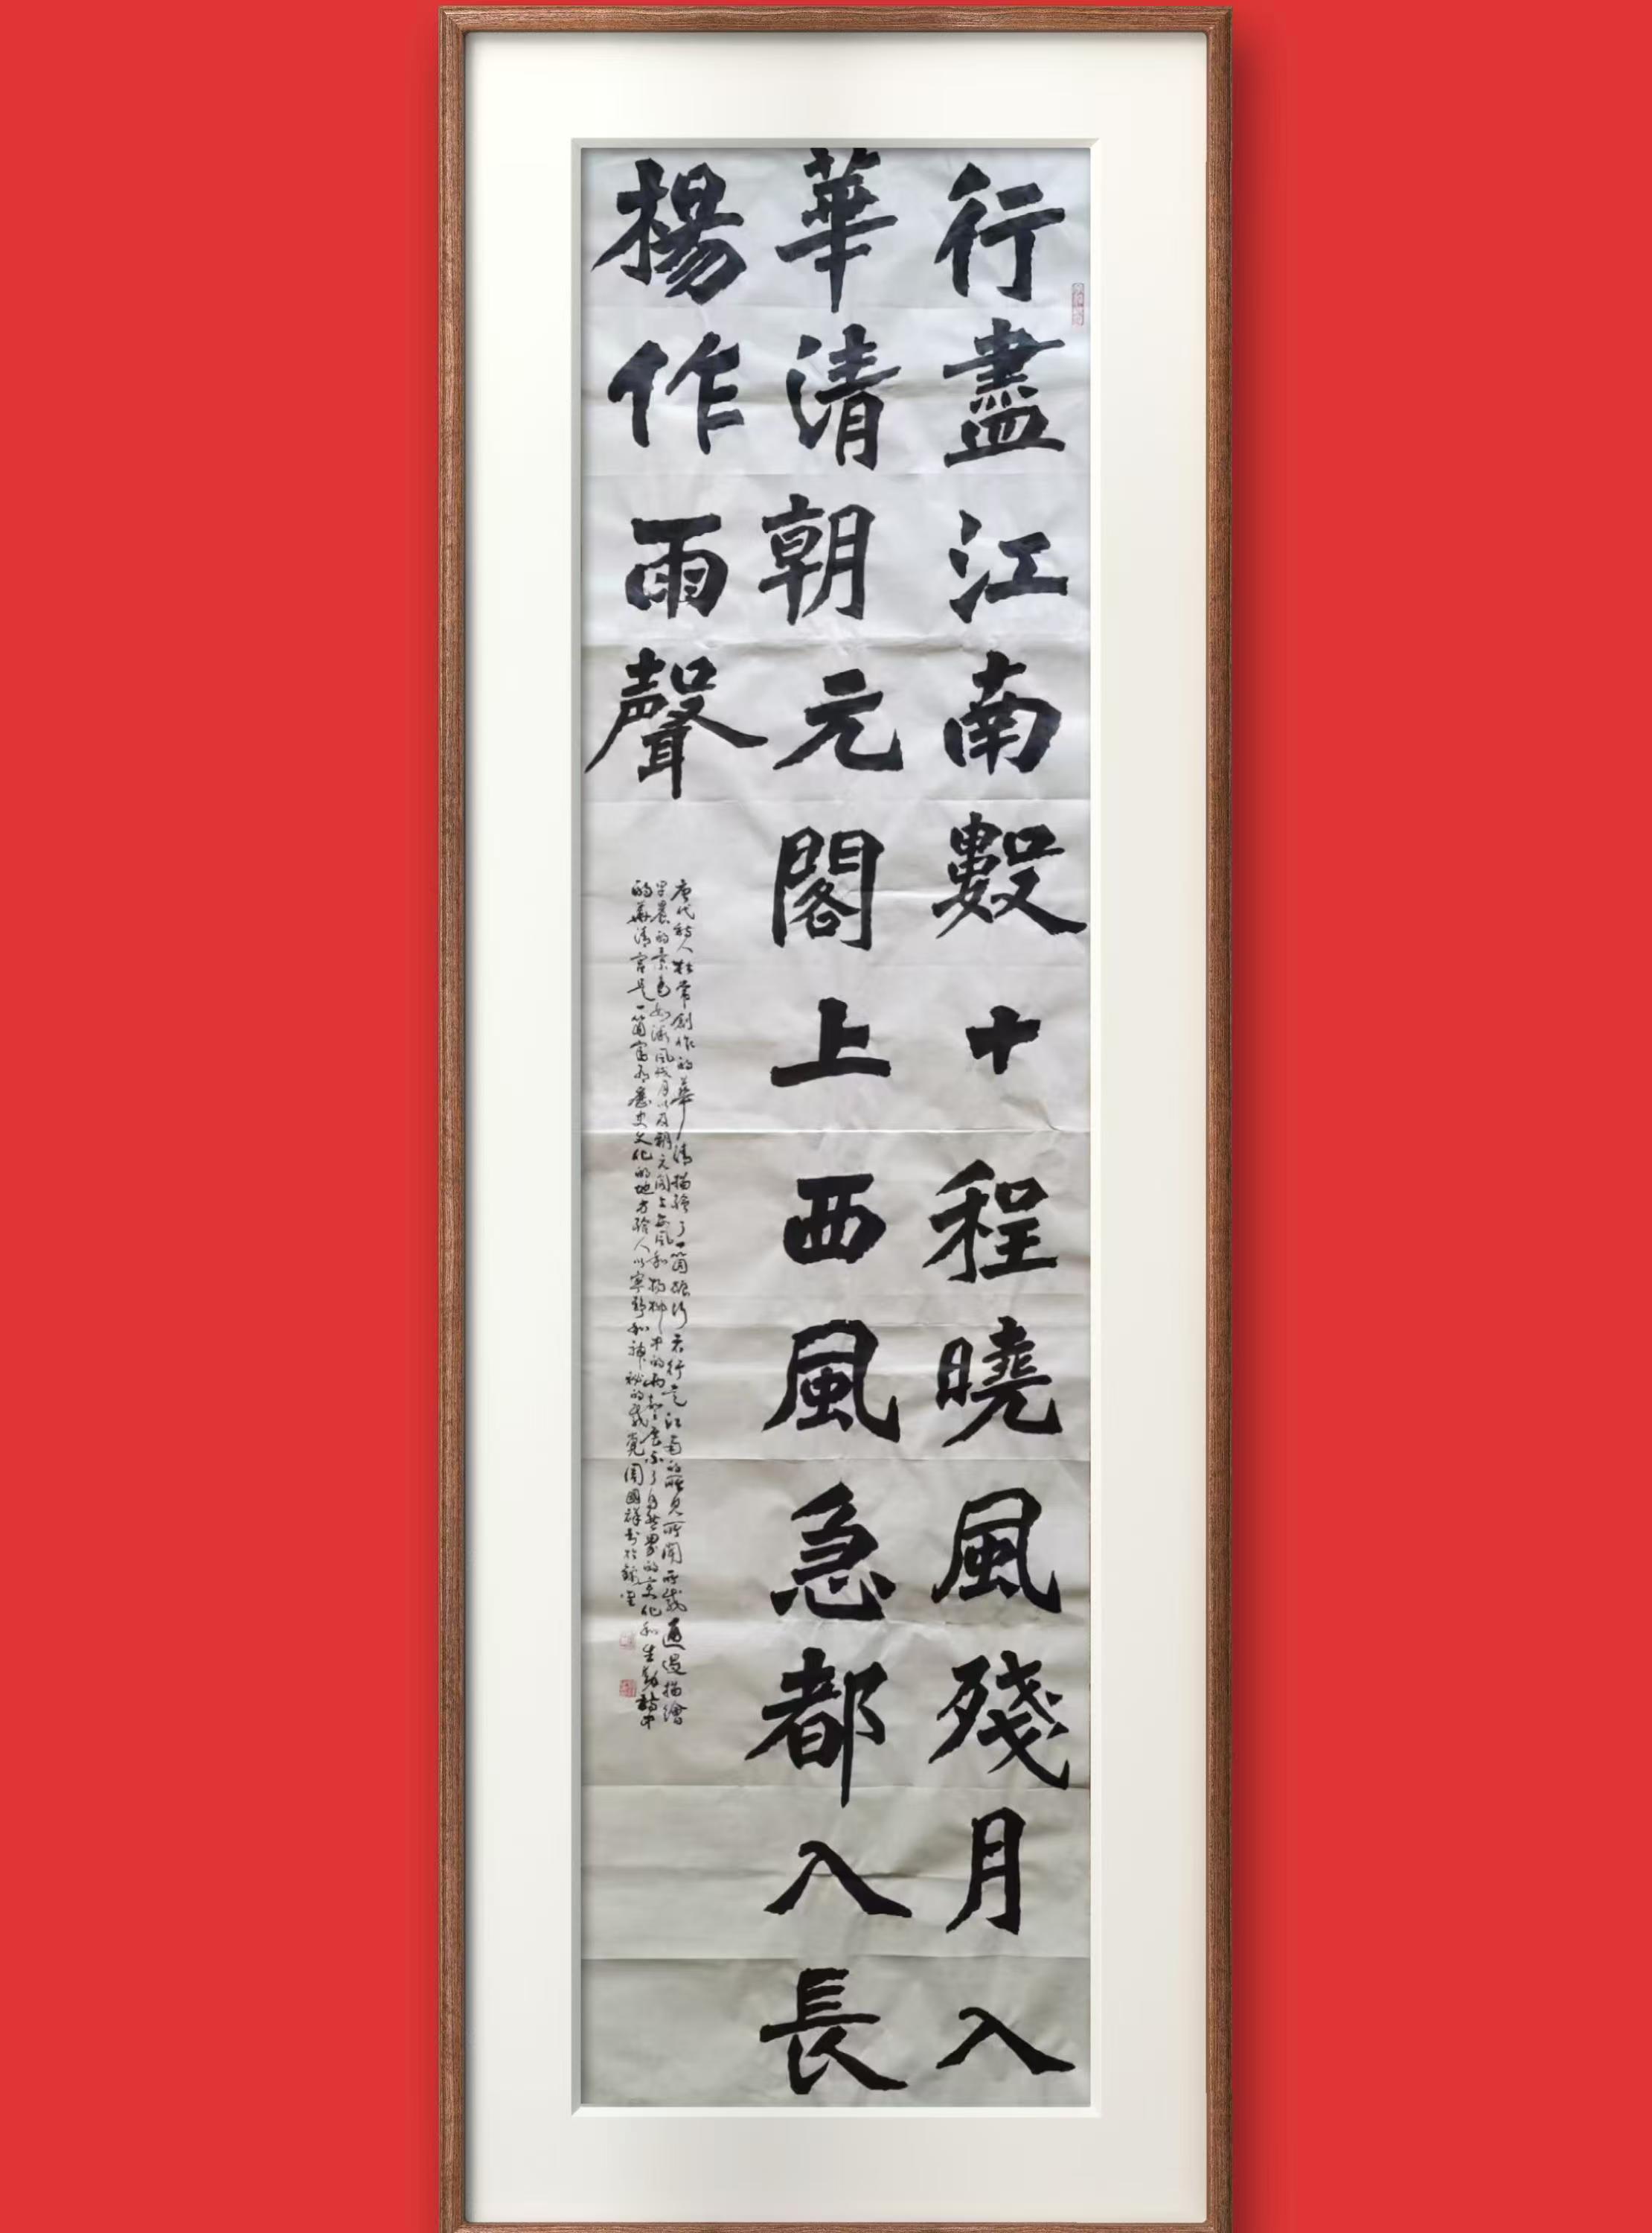 行盡江南數十程曉風殘月入
華清朝元閣上西風急都入長
楊作雨聲
唐代詩人杜常創作的華清描繪了一箇旅行者行走江南的所見所聞所感通過描繪
早晨的景色如瀟風殘月以及朝元閣上西風和楊柳中的雨聲展示了自然界的變化和生動詩中
的華清宮是一箇富有歷史文化的地方給人以寧靜和神秘的感覺周國祥書於